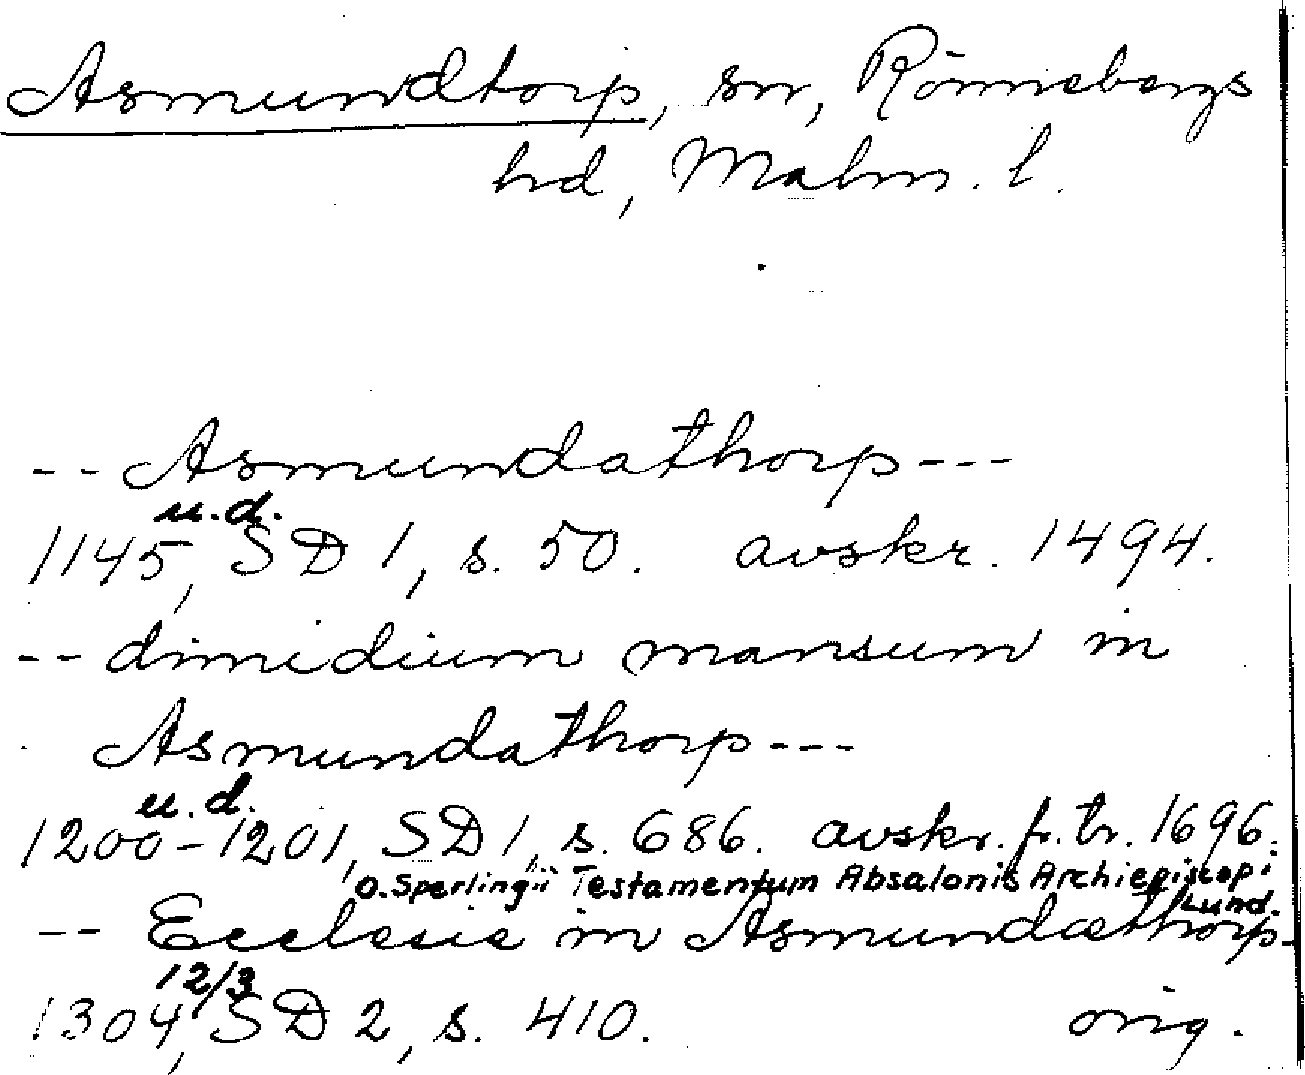 Asmundtorp, sn, Rönnebergs
hd, Malm. l.
-- Asmundathorp ---
u.d.
1145, SD 1, s. 50. avskr. 1494.
-- dimidium mansum in
Asmundathorp ---
u.d.
1200-1201, SD 1, s. 686. avskr. fr. tr. 1696.
O. Sperlingii Testamentum Absalonis Archiepiscopi
Lund.
-- Ecclesie in Asmundæthorp-
12/3
1304, SD 2, s. 410. orig.